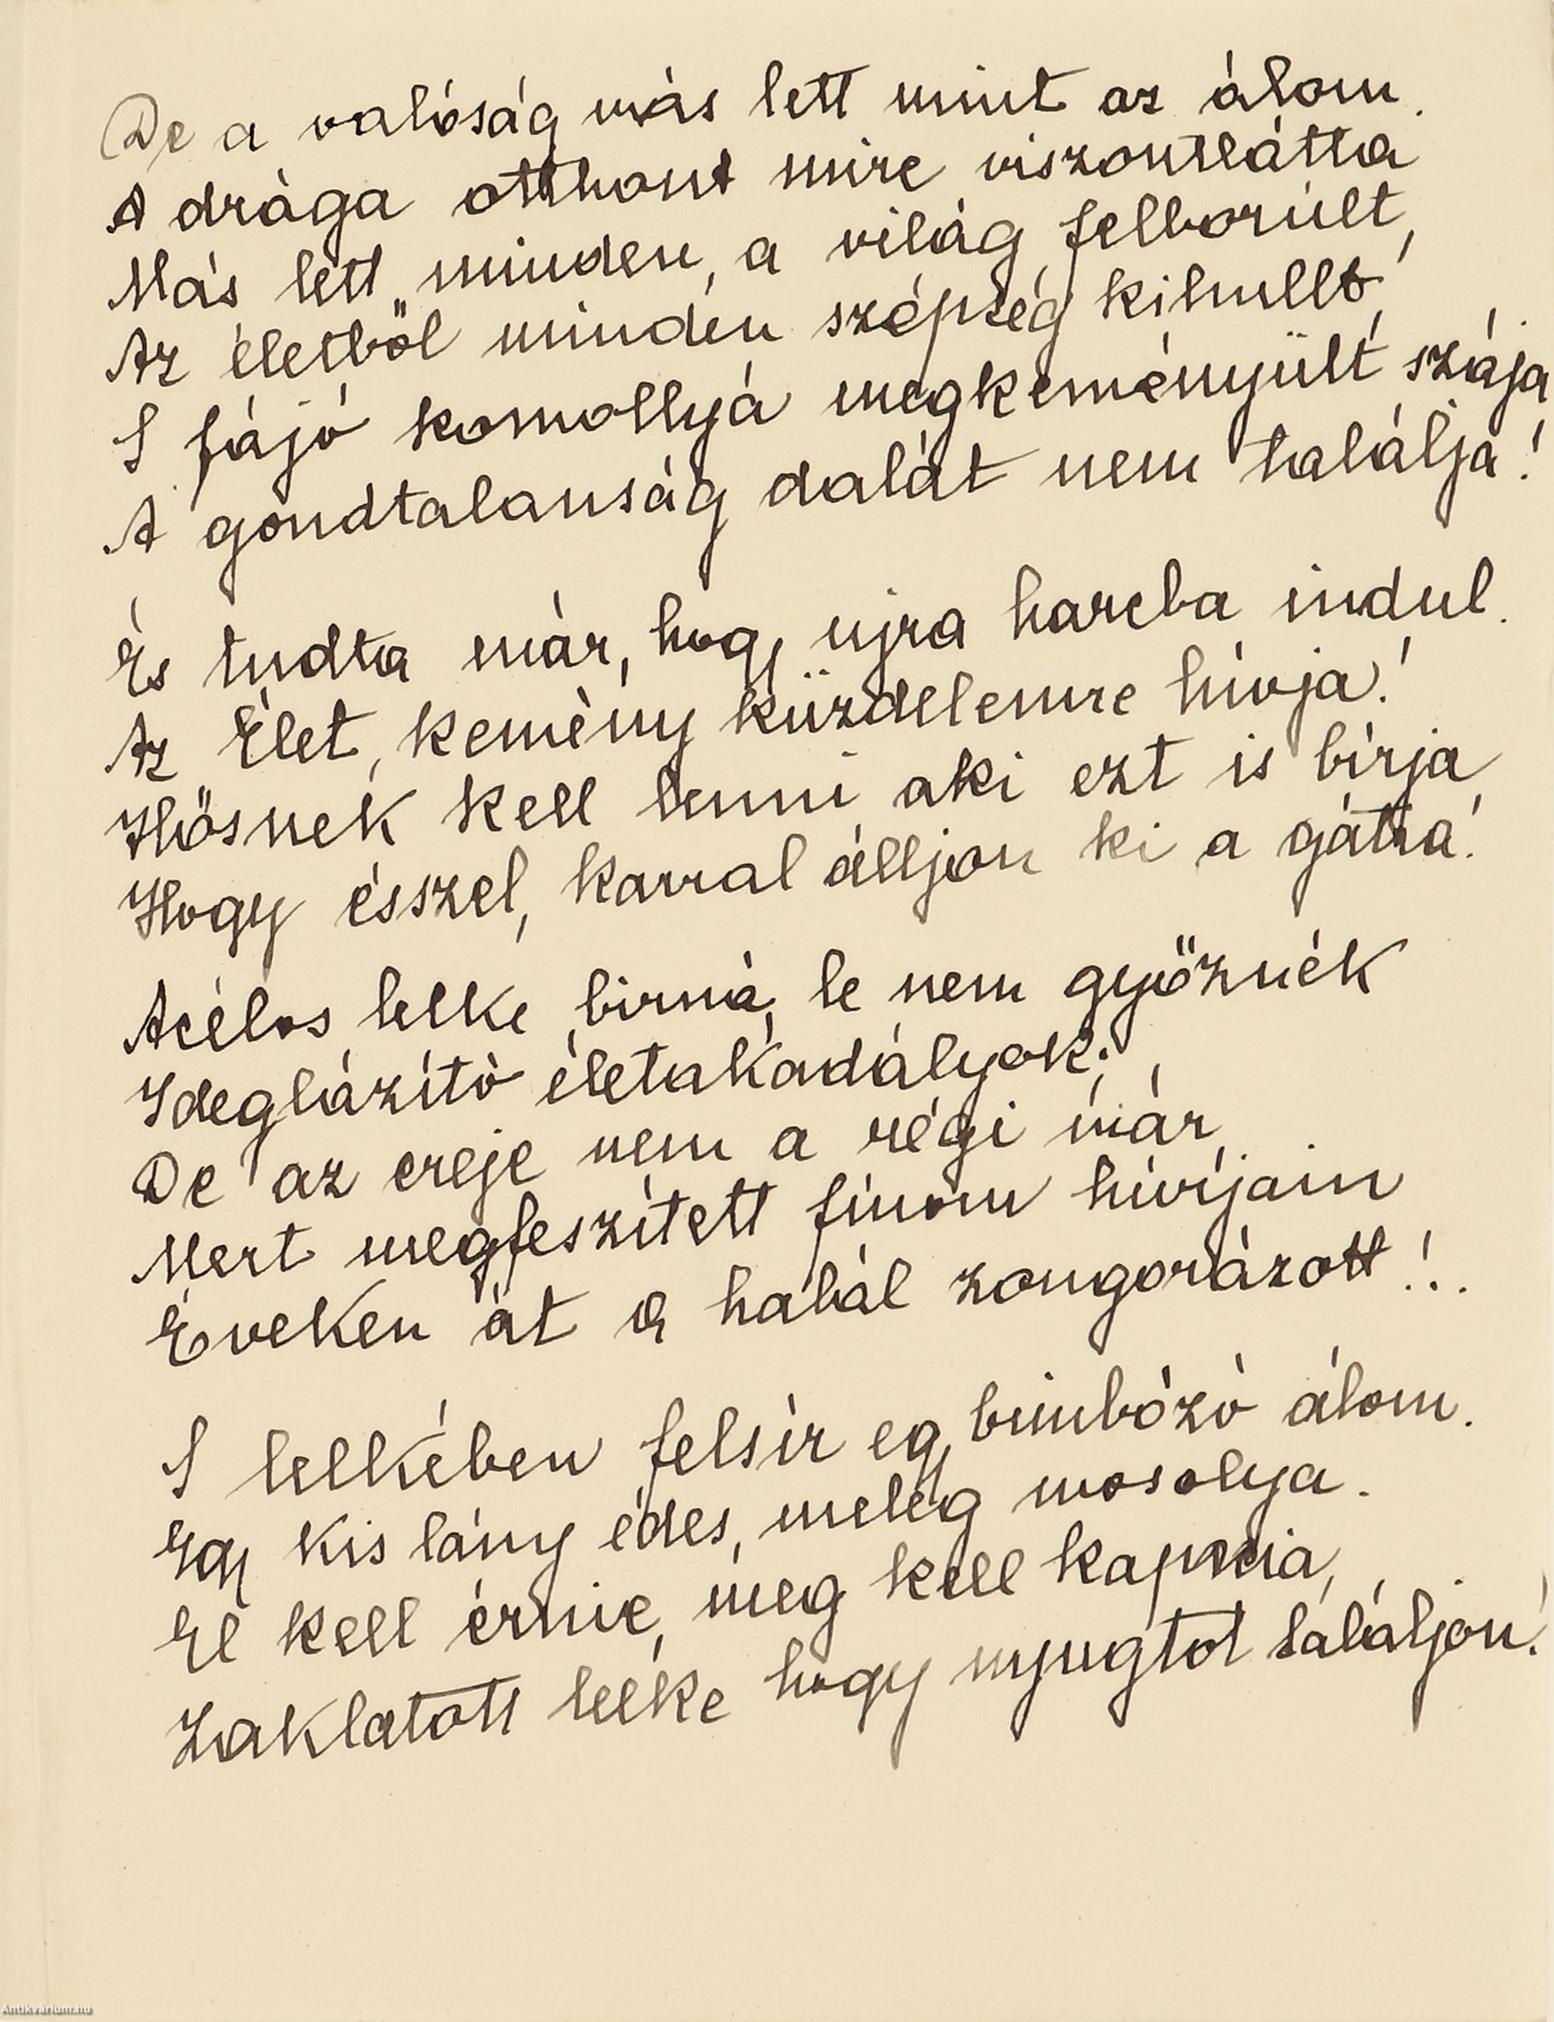 De a valóság más lett mint az álom.
A drága otthont mire viszontlátta
Más lett minden, a világ felborúlt,
Az életből minden szépség kihullt,
S fájó komollyá megkeményült szája
A gondtalanság dalát nem találja!
És tudta már, hogy ujra harcba indul.
Az Élet, kemény küzdelemre hívja!
Hősnek kell lenni aki ezt is bírja,
Hogy ésszel, karral álljon ki a gátra!
Acélos lelke birná, le nem győznék
Ideglázító életakadályok;
De az ereje nem a régi már,
Mert megfeszített finom húrjain
Éveken át a halál zongorázott!..
S lelkében felsír egy bimbózó álom.
Egy kis lány édes, meleg mosolya.
El kell érnie, meg kell kapnia,
Zaklatott lelke hogy nyugtot találjon!
Antikvárium.hu